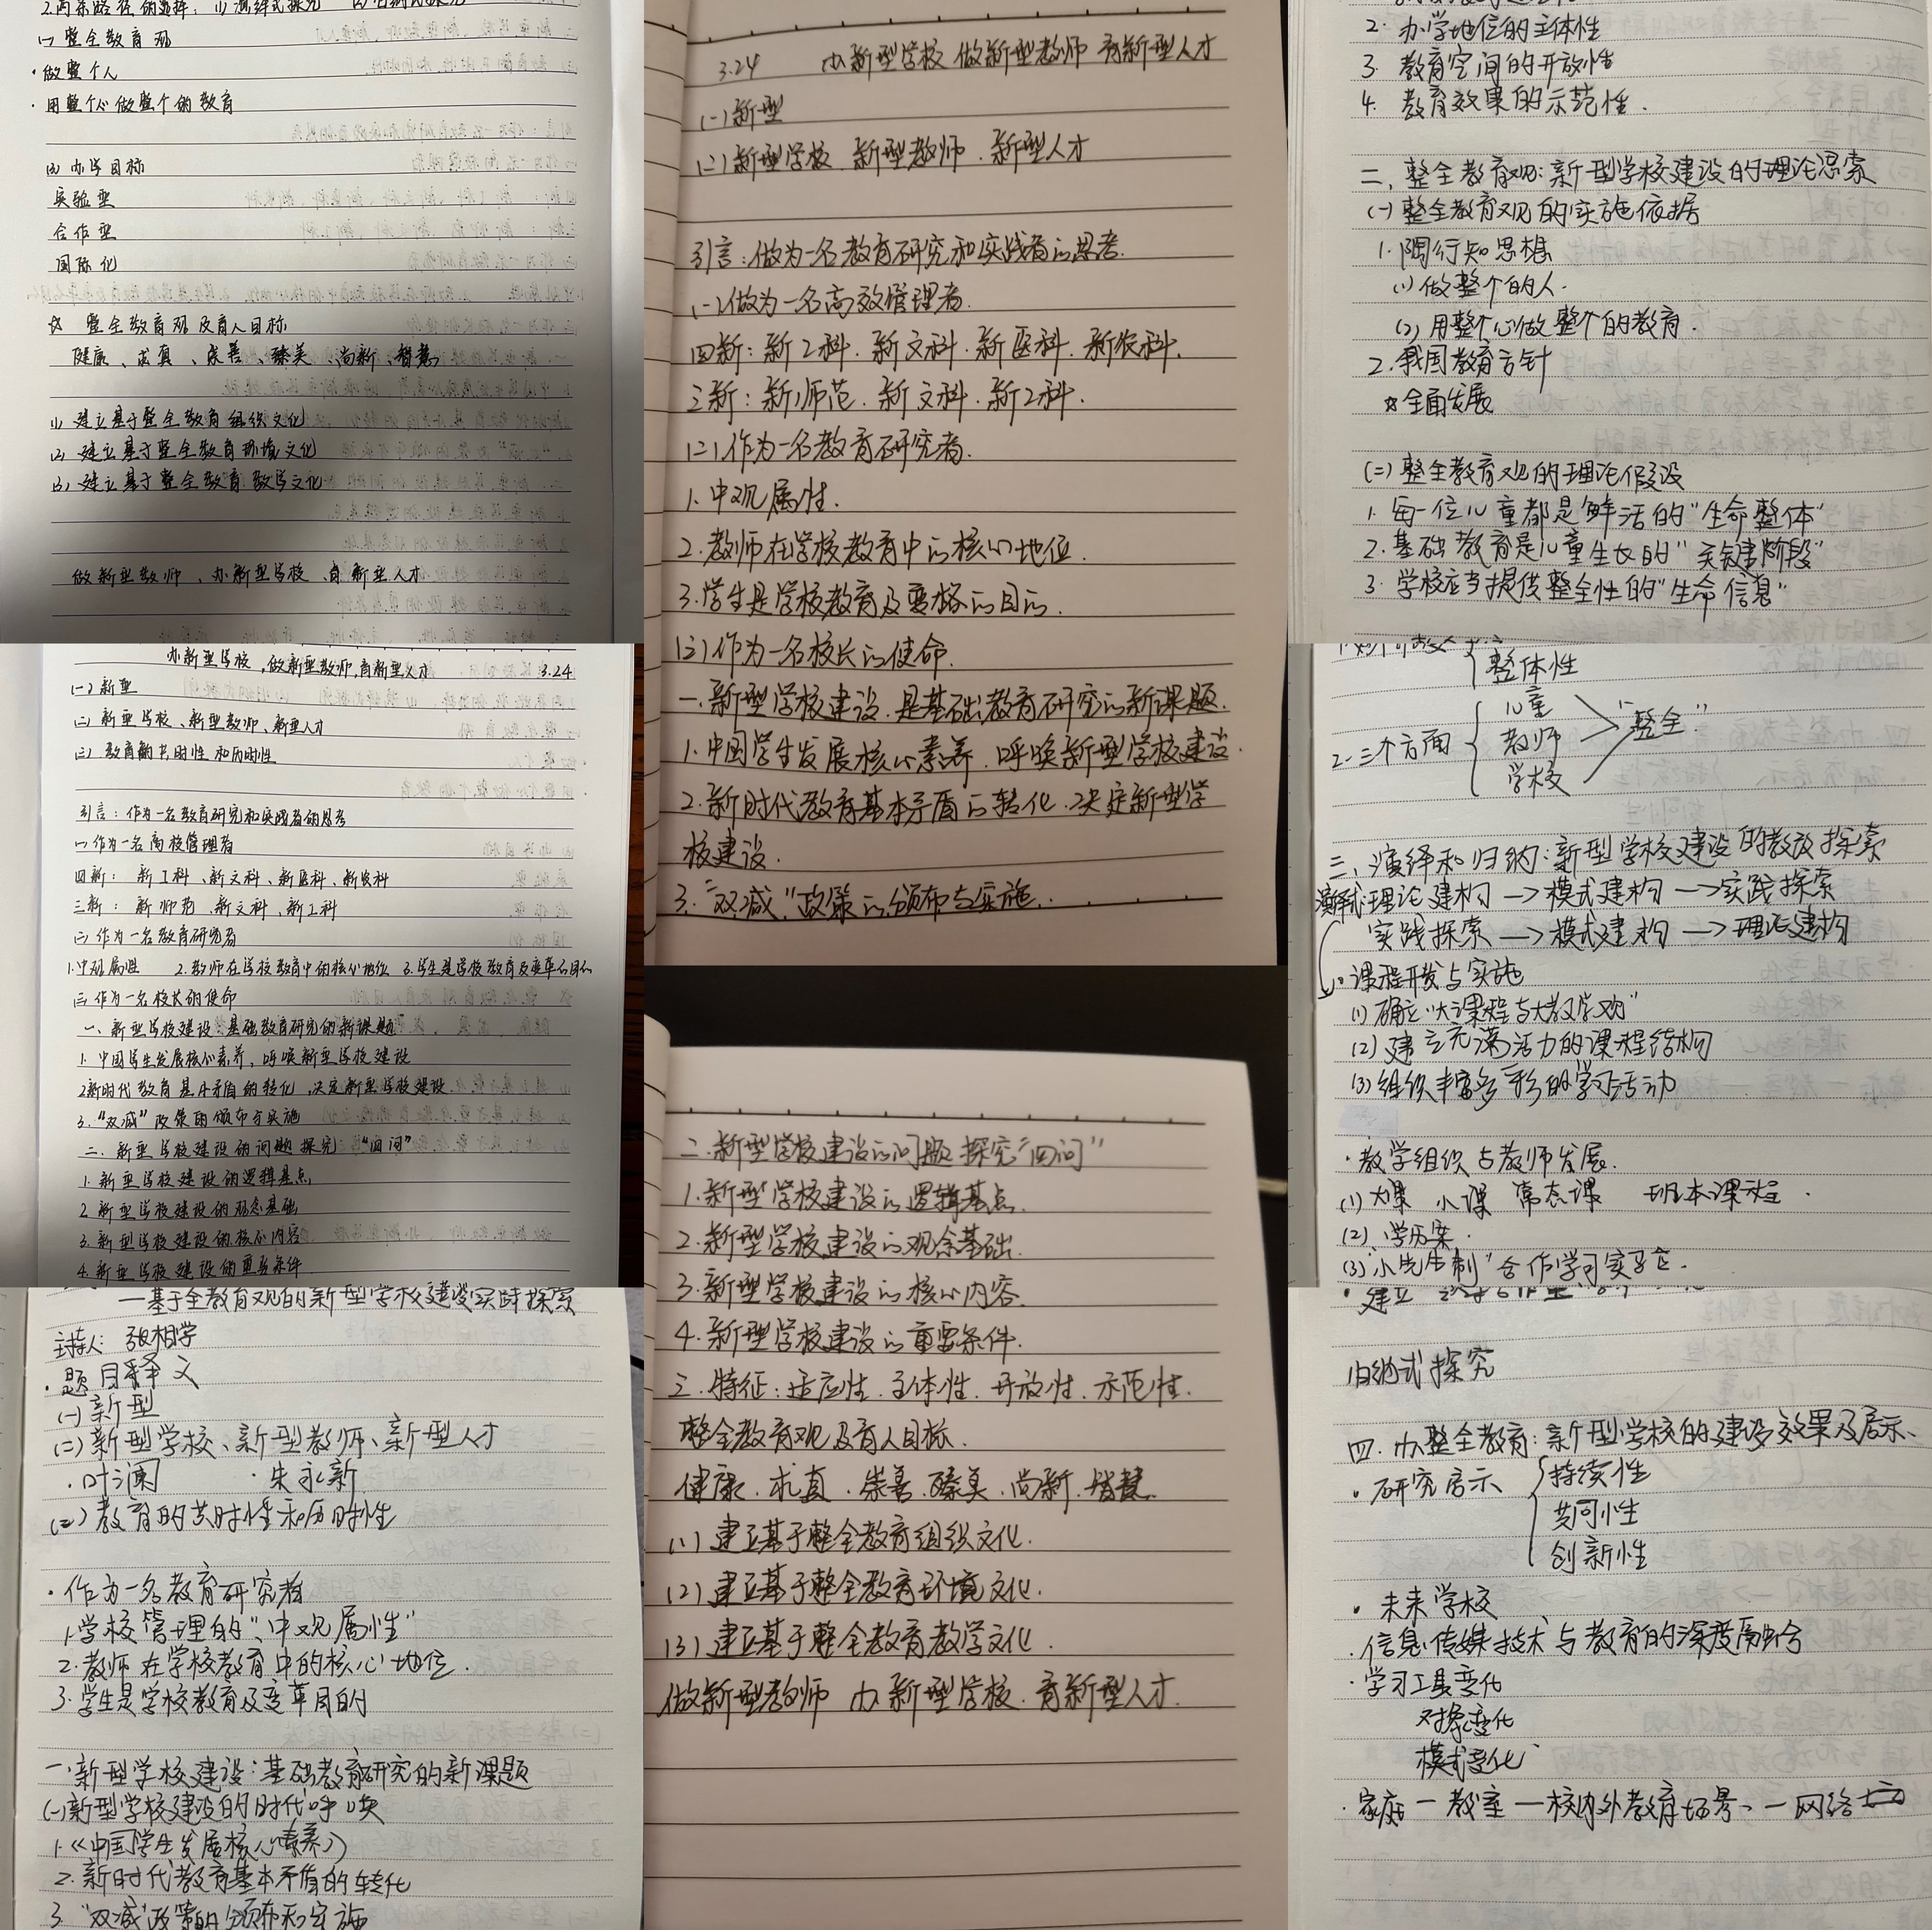 2.两条路径的选择：(1)演绎式探究 (2)归纳式探究
(一)整全教育观
·做整个人
·用整个心做整个的教育
(四)办学目标
实验型
合作型
国际化
☆ 整全教育观及育人目标
健康、求真、崇善、臻美、尚新、智慧
(1)建立基于整全教育组织文化
(2)建立基于整全教育环境文化
(3)建立基于整全教育教学文化
做新型教师、办新型学校、育新型人才
办新型学校,做新型教师,育新型人才 3.24
(一)新型
(二)新型学校、新型教师、新型人才
(三)教育的共时性和历时性
引言：作为一名教育研究和实践者的思考
(一)作为一名高校管理者
四新：新工科、新文科、新医科、新农科
三新：新师范、新文科、新工科
(二)作为一名教育研究者
1.中观属性 2.教师在学校教育中的核心地位 3.学生是学校教育及变革的目的
(三)作为一名校长的使命
一、新型学校建设：基础教育研究的新课题
1.中国学生发展核心素养,呼唤新型学校建设
2.新时代教育基本矛盾的转化,决定新型学校建设
3.“双减”政策的颁布与实施
二、新型学校建设的问题探究 “四问”
1.新型学校建设的逻辑基点
2.新型学校建设的观念基础
3.新型学校建设的核心内容
4.新型学校建设的重要条件
—基于全教育观的新型学校建设实践探索
主持人：张相学
·题目释义
(一)新型
(二)新型学校、新型教师、新型人才
·叶澜 ·朱永新
(三)教育的共时性和历时性
·作为一名教育研究者
1.学校管理的“中观属性”
2.教师在学校教育中的核心地位.
3.学生是学校教育及变革目的
一.新型学校建设：基础教育研究的新课题
(一)新型学校建设的时代呼唤
1.《中国学生发展核心素养》
2.新时代教育基本矛盾的转化
3.“双减”政策的颁布和实施
3.24 办新型学校 做新型教师 育新型人才
(一)新型
(二)新型学校.新型教师.新型人才
引言：做为一名教育研究和实践者的思考.
(一)做为一名高效管理者.
四新：新工科.新文科.新医科.新农科.
三新：新师范.新文科.新工科.
(二)作为一名教育研究者.
1.中观属性.
2.教师在学校教育中的核心地位.
3.学生是学校教育及变格的目的.
(三)作为一名校长的使命.
一.新型学校建设.是基础教育研究的新课题.
1.中国学生发展核心素养.呼唤新型学校建设.
2.新时代教育基本矛盾的转化.决定新型学
校建设.
3.“双减”政策的颁布与实施.
二.新型学校建设的问题探究“四问”
1.新型学校建设的逻辑基点.
2.新型学校建设的观念基础.
3.新型学校建设的核心内容.
4.新型学校建设的重要条件.
三.特征：适应性.主体性.开放性.示范性.
整全教育观及育人目标.
健康.求真.崇善.臻美.尚新.智慧.
(1)建立基于整全教育组织文化.
(2)建立基于整全教育环境文化.
(3)建立基于整全教育教学文化.
做新型教师 办新型学校.育新型人才.
2.办学地位的主体性
3.教育空间的开放性
4.教育效果的示范性.
二.整全教育观：新型学校建设的理论思索
(一)整全教育观的实施依据
1.陶行知思想
(1)做整个的人.
(2)用整个心做整个的教育.
2.我国教育方针
☆全面发展
(二)整全教育观的理论假设
1.每一位儿童都是鲜活的“生命整体”
2.基础教育是儿童生长的“关键阶段”
3.学校应当提供整全性的“生命信息”
整体性
2.三个方面 儿童 教师 学校 “整全”
三、演绎和归纳：新型学校建设的教改探索
演绎式:理论建构→模式建构→实践探索
实践探索→模式建构→理论建构
·课程开发与实施
(1)确立“大课程与大教学观”
(2)建立充满活力的课程结构
(3)组织丰富多彩的学习活动
·教学组织与教师发展.
(1)大课 小课 常态课 班本课程.
(2)学历案.
(3)“小先生制”合作学习实验.
·建立
归纳式探究
四.办整全教育：新型学校的建设效果及启示、
·研究启示 持续性
共同性
创新性
·未来学校
·信息传媒技术与教育的深度融合
·学习工具变化
对象变化
模式变化
·家庭—教室—校内外教育场景、—网络